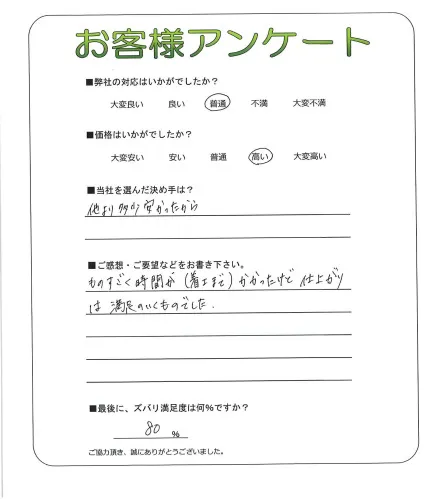 お客様アンケート
■弊社の対応はいかがでしたか?
大変良い 良い 普通 不満 大変不満
■価格はいかがでしたか?
大変安い 安い 普通 高い 大変高い
■当社を選んだ決め手は?
他より多少安かったから
■ご感想・ご要望などをお書き下さい。
ものすごく時間が(着工まで)かかったけど仕上がり
は満足のいくものでした.
■最後に、ズバリ満足度は何%ですか?
80 %
ご協力頂き、誠にありがとうございました。